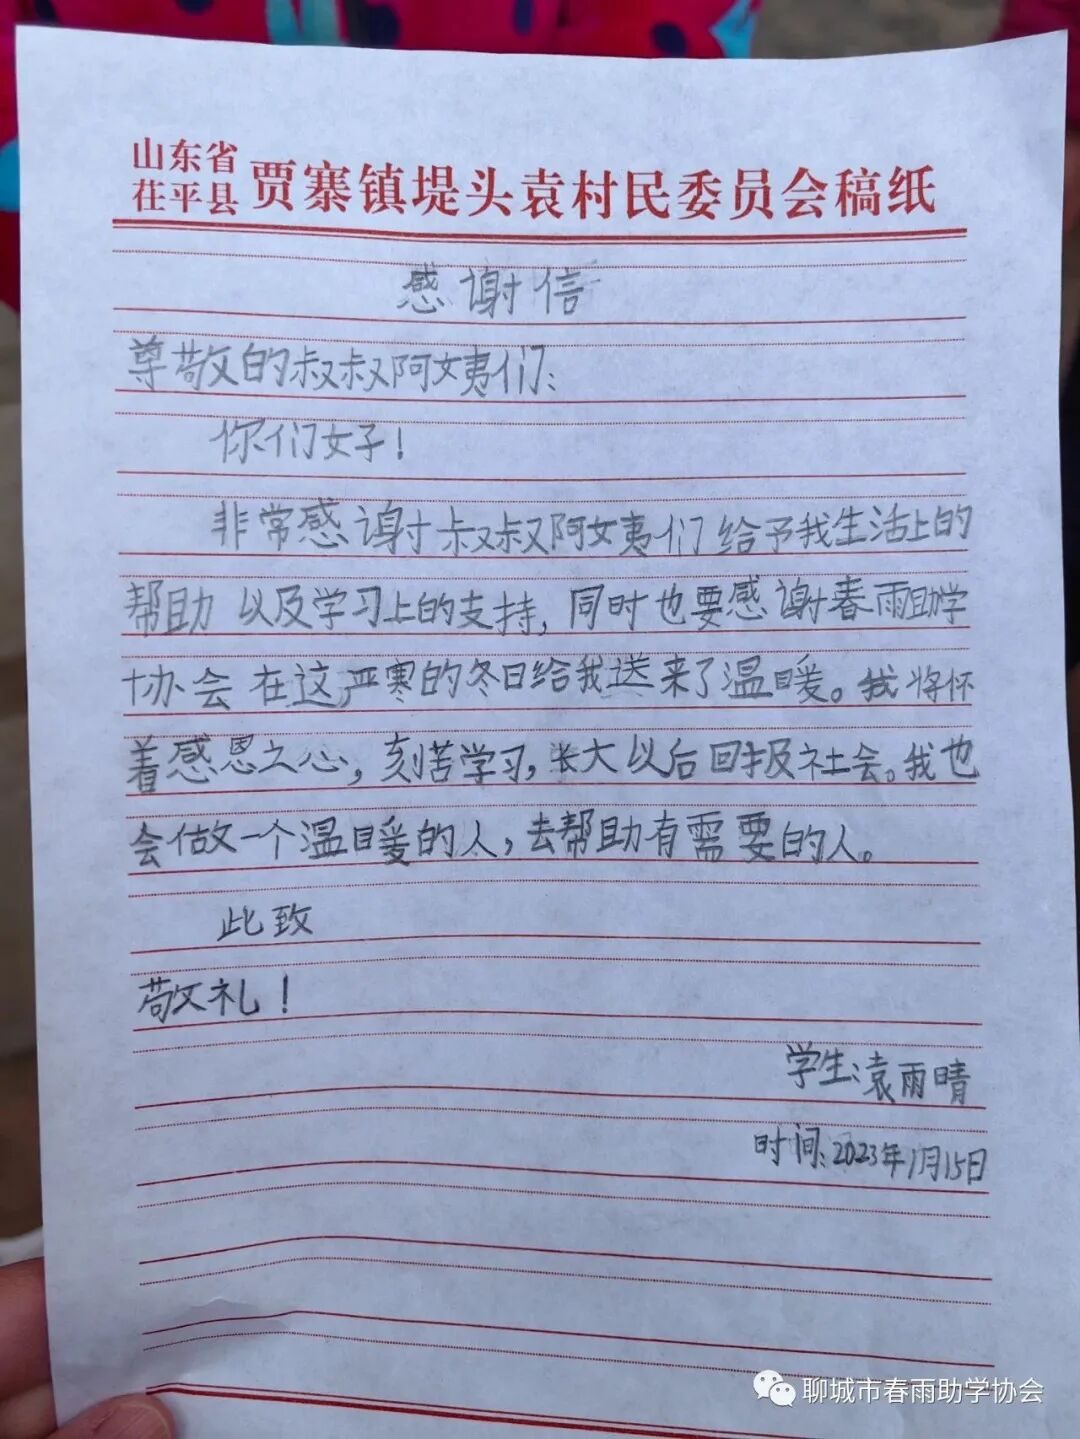 山东省
茌平县 贾寨镇堤头袁村民委员会稿纸
感谢信
尊敬的叔叔阿姨们：
你们好！
非常感谢叔叔阿姨们给予我生活上的
帮助 以及学习上的支持，同时也要感谢春雨助学
协会 在这严寒的冬日给我送来了温暖。我将怀
着感恩之心，刻苦学习，长大以后回报社会。我也
会做一个温暖的人，去帮助有需要的人。
此致
敬礼！
学生：袁雨晴
时间：2023年1月15日
聊城市春雨助学协会